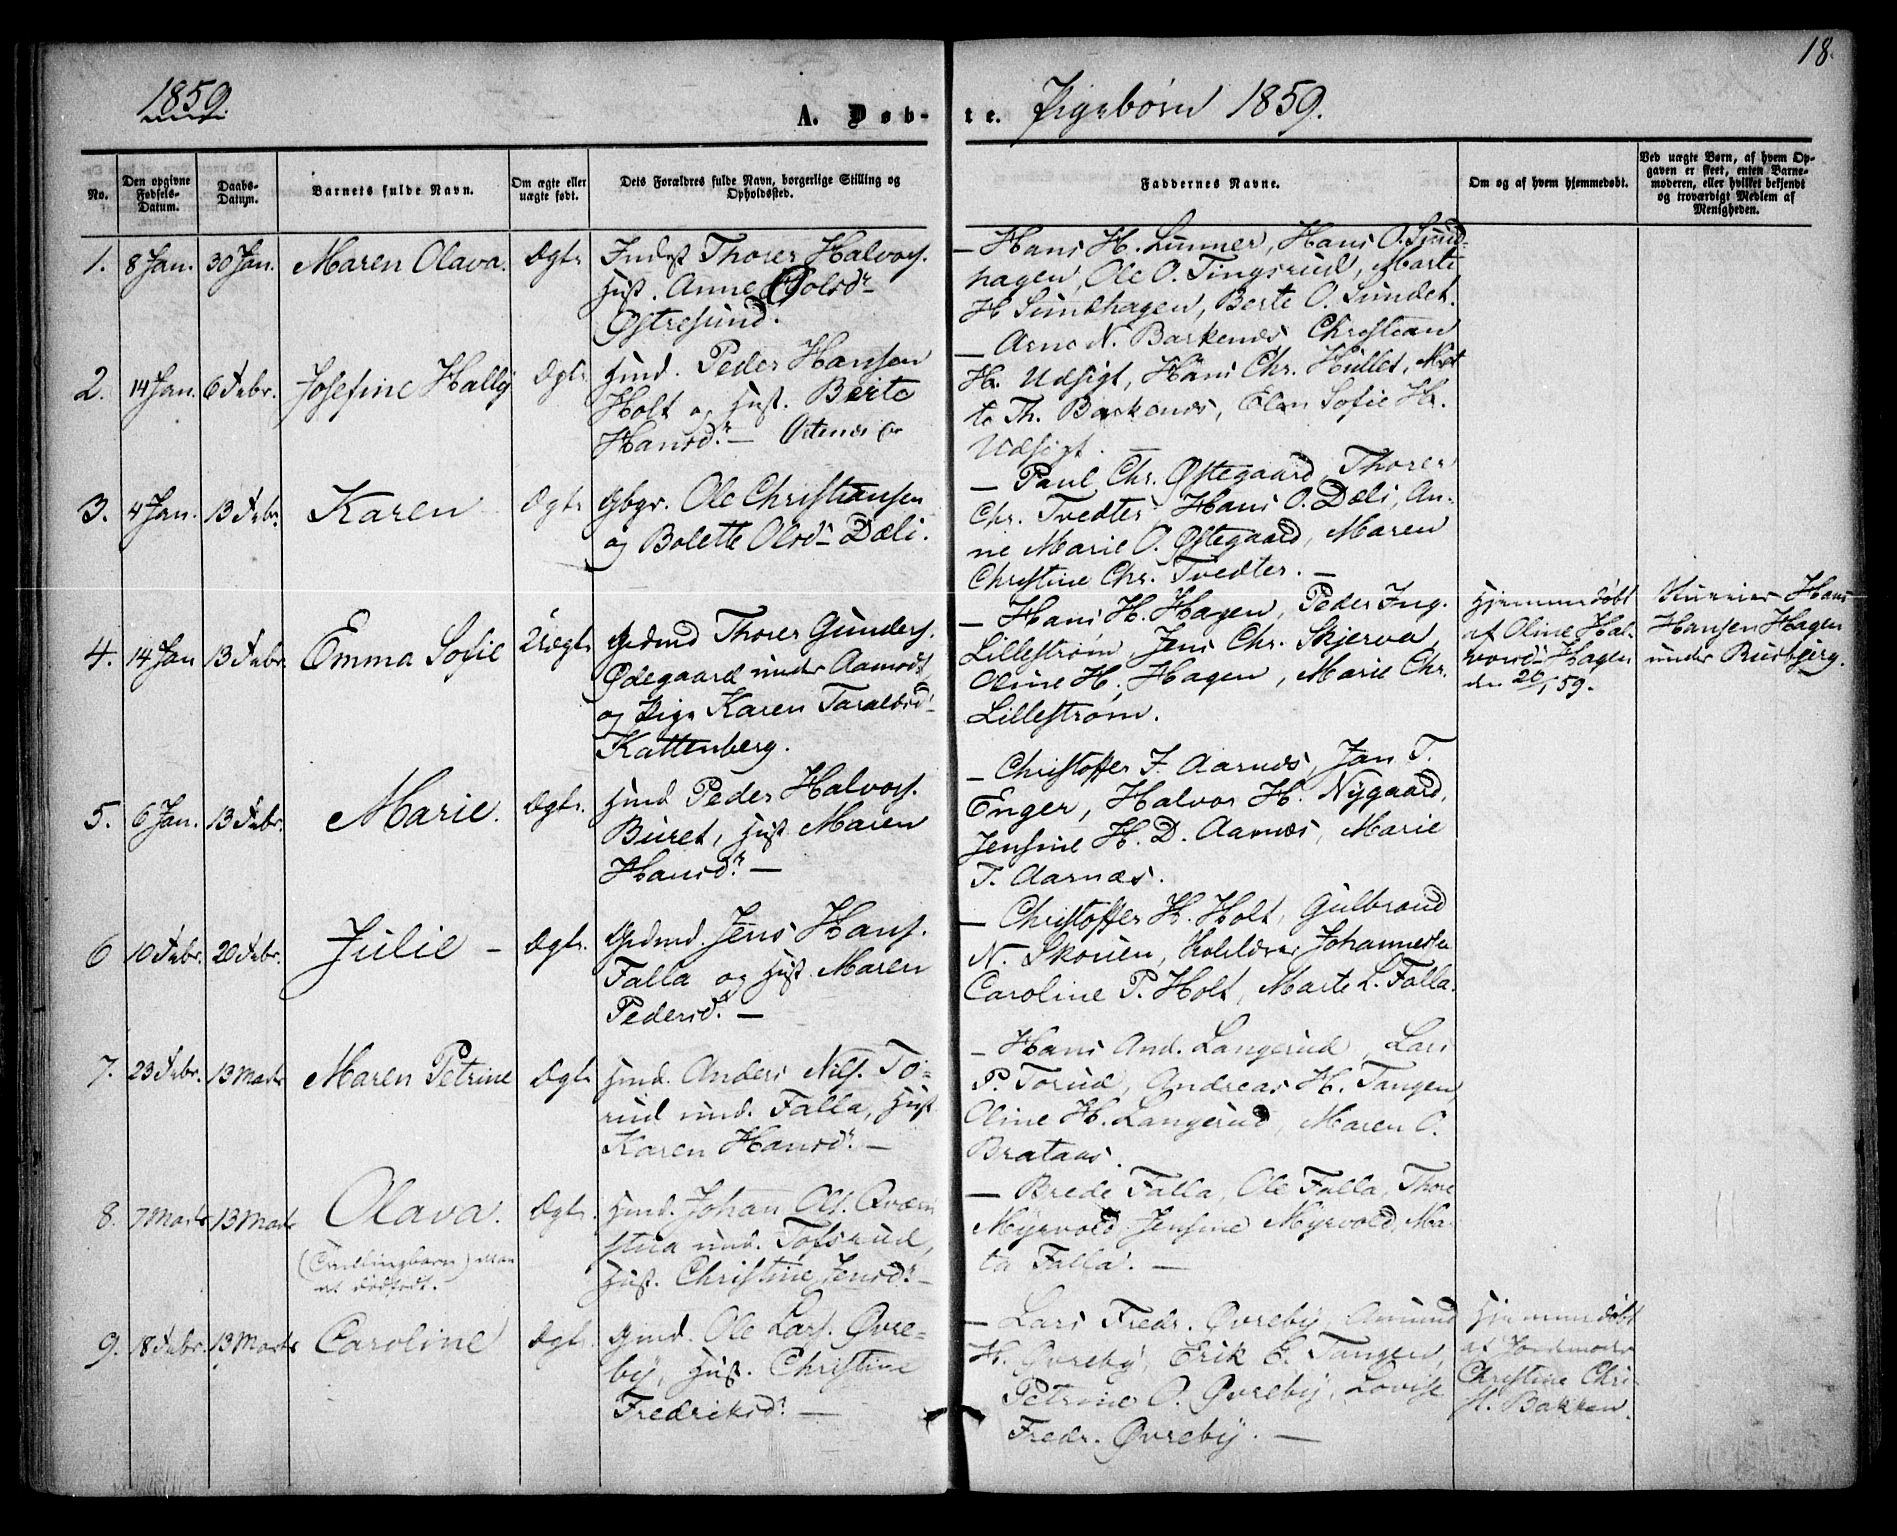 18.
1859.
A. Døb-
te. Pigebørn 1859.
No.
Den opgivne
Fødsels-
Datum.
Daabs-
Datum.
Barnets fulde Navn.
Om ægte eller
uægte født.
Dets Forældres fulde Navn, borgerlige Stilling og
Opholdssted.
Faddernes Navne.
Om og af hvem hjemmedøbt.
Ved uægte Børn, af hvem Op-
gaven er skeet, enten Barne-
moderen, eller hvilket bekjendt
og troværdigt Medlem af
Menigheden.
1. 8 Jan. 30 Jan. Maren Olava. Ægte
Inderst Thorer Halvors.
Hust. Anne Olsd.
Østresund.
— Hans H. Lunner, Hans O. Sund-
hagen, Ole O. Tingsrud, Marte
H Sundhagen, Berte O. Sundet.
2. 14 Jan. 6 Febr. Josefine Hally Ægte
Hmd. Peder Hansen
Holt og Hust. Berte
Hansd. —
— Arne N. Barkenæs, Christian
H. Udsigt, Hans Chr. Hullet, Mar
te Th. Barkenæs, Elen Sofie H.
Udsigt.
3. 4 Jan. 13 Febr. Karen Ægte
Gbgr. Ole Christiansen
og Bolette Olsd. Dæli.
— Paul Chr. Østegaard, Thorer
Chr. Tvedter, Hans O. Dæli, An-
ne Marie O. Østegaard, Maren
Christine Chr. Tvedter. —
4. 14 Jan 13 Febr. Emma Sofie Uægte
Grdmd Thorer Gunders.
Ødegaard under Aamodt
og Pige Karen Taraldsd.
Kattenberg.
— Hans H. Hagen, Peder Ing.
Lillestrøm, Jens Chr. Skjerva,
Oline H. Hagen, Marie Chr.
Lillestrøm.
Hjemmedøbt
af Oline Hal-
vorsd. Hagen
den 20/1 59.
Hans
Hansen Hagen
under Busbjerg.
5. 6 Jan. 13 Febr. Marie. Ægte
Hmd Peder Halvors.
Buret, Hust Maren
Hansd. —
— Christoffer J. Aarnæs, Jan T.
Enger, Halvor H. Nygaard,
Jensine H. D. Aarnæs, Marie
T. Aarnæs.
6 10 Febr. 20 Febr. Julie — Ægte
Grdmd. Jens Hans.
Falla og Hust. Maren
Pedersd. —
— Christoffer H. Holt, Gulbrand
N. Skouen, Johannes
Caroline P. Holt, Marte L. Falla.
7. 23 Febr. 13 Marts Maren Petrine Ægte
Hmd. Anders Nils. To-
rud und. Falla, Hust
Karen Hansd. —
— Hans And. Langerud, Lars
P. Torud, Andreas H. Tangen,
Oline H. Langerud, Maren O.
Brataas.
8. 7 Marts 13 Marts Olava. Ægte
(Tvillingbarn)
dødfødt.
Hmd. Johan Ols. Qværn
stua und. Tofsrud,
Hust. Christine Jensd. —
— Brede Falla, Ole Falla, Thore
Myrvold, Jensine Myrvold, Ma-
te Falla. —
9. 18 Febr. 13 Marts Caroline Ægte
Gmd. Ole Lars. Øvre-
by, Hust. Christine
Fredriksd. —
— Lars Fredr. Øvreby, Amund
H. Øvreby, Erik E. Tangen,
Petrine O. Øvreby, Lovise
Fredr. Øvreby. —
Hjemmedøbt
af Jordmoder
Christine Chri-
st. Bakken.